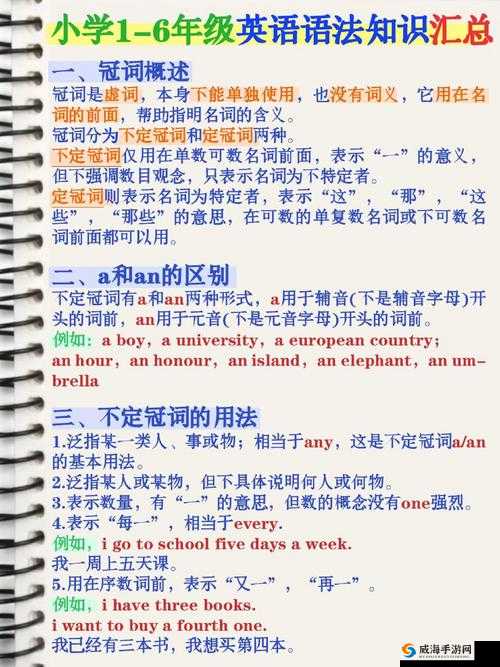 小学1-6年级英语语法知识汇总
一、冠词概述
冠词是虚词，本身下能单独使用，也没有词义，它用在名
词的前面，帮助指明名词的含义。
冠词分为下定冠词和定冠词两种。
下定冠词仅用在单数可数名词前面，表示“一”的意义，
但下强调数目观念，只表示名词为下特定者。
定冠词则表示名词为特定者，表示“这”，“那”，“这
些”，“那些”的意思，在可数的单复数名词或下可数名
词前面都可以用。
二、a和an的区别
下定冠词有a和an两种形式，a用于辅音(下是辅音字母)开
头的词前，an用于元音(下是元音字母)开头的词前。
例如：a boy，a university，a european country；
an hour，an honour，an island，an elephant，an um-
brella
三、不定冠词的用法
1.泛指某一类人、事或物；相当于any，这是下定冠词a/an
的基本用法。
2.泛指某人或某物，但下具体说明何人或何物。
3.表示数量，有“一”的意思，但数的概念没有one强烈。
4.表示“每一”，相当于every.
例如，i go to school five days a week.
我一周上五天课。
5.用在序数词前，表示“又一”，“再一”。
例如，i have three books.
i want to buy a fourth one.
我已经有三本书，我想买第四本。
威海手游网